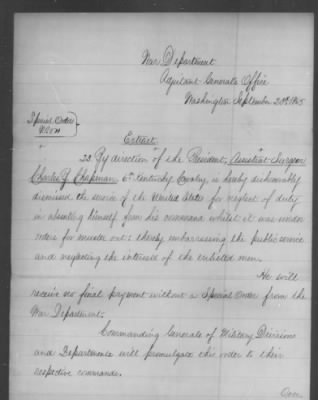 War Department
Adjutant Generals Office
Washington September 20th 1865
Special Orders
Extract
23. By direction of the President, Assistant Surgeon
Charles Chapman, 6th Kentucky Cavalry, is hereby dishonorably
dismissed the service of the United States for neglect of duty
in absenting himself from his command whilst it was under
orders for muster out; thereby embarrassing the public service
and neglecting the interests of the enlisted men.
He will
receive no final payment without a Special Order from the
War Department.
Commanding Generals of Military Divisions
and Departments will promulgate this order to their
respective commands.